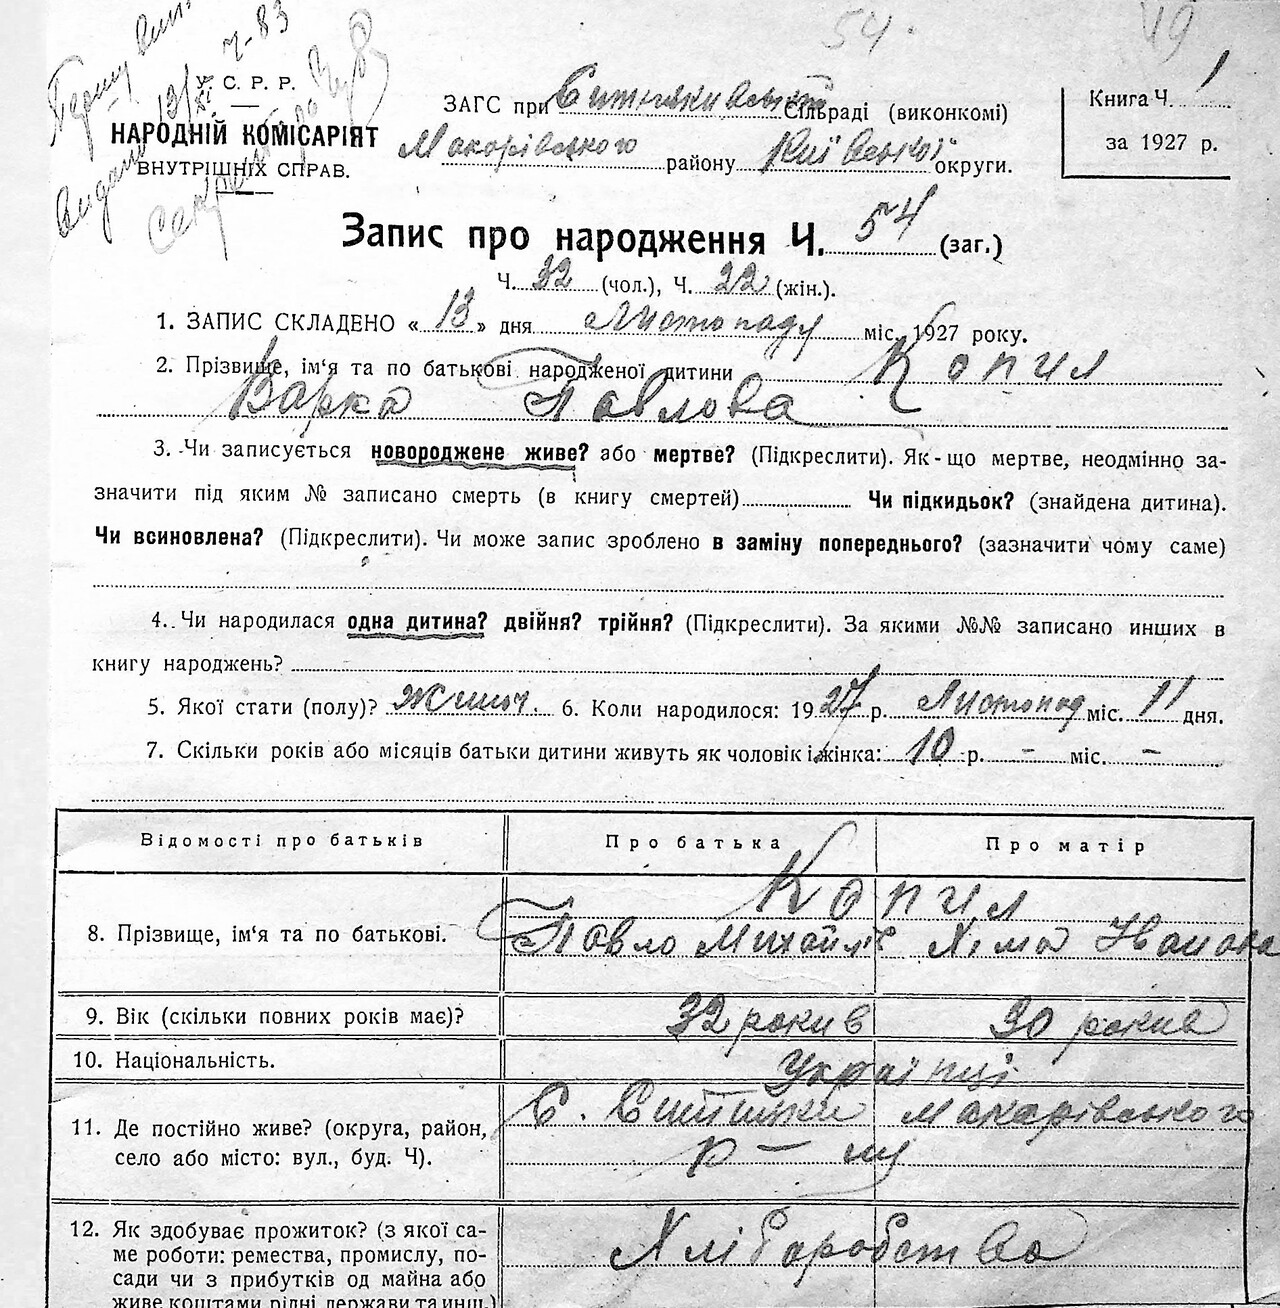 54. 49
У. С. Р. Р.
НАРОДНІЙ КОМІСАРІЯТ
ВНУТРІШНІХ СПРАВ.
Ч-83
ЗАГС при Ситняківській Сільраді (виконкомі)
Макарівського району Київської округи.
Книга Ч. 1
за 1927 р.
Запис про народження Ч. 54 (заг.)
Ч. 32 (чол.), Ч. 22 (жін.).
1. ЗАПИС СКЛАДЕНО « 13 » дня Листопаду міс. 1927 року.
2. Прізвище, ім'я та по батькові народженої дитини Копил
Варка Павлова
3. Чи записується новороджене живе? або мертве? (Підкреслити). Як-що мертве, неодмінно за-
значити під яким № записано смерть (в книгу смертей) Чи підкидьок? (знайдена дитина).
Чи всиновлена? (Підкреслити). Чи може запис зроблено в заміну попереднього? (зазначити чому саме)
4. Чи народилася одна дитина? двійня? трійня? (Підкреслити). За якими №№ записано инших в
книгу народжень?
5. Якої стати (полу)? Жіноч. 6. Коли народилося: 1927 р. Листопад міс. 11 дня.
7. Скільки років або місяців батьки дитини живуть як чоловік і жінка: 10 р. - міс. -
Відомості про батьків Про батька Про матір
Копил
8. Прізвище, ім'я та по батькові. Павло Михайлів Хіма Іванова
9. Вік (скільки повних років має)? 32 рокив 30 рокив
10. Національність. Українці
11. Де постійно живе? (округа, район, С. Ситняки Макарівського
село або місто: вул., буд. Ч). р-ну
12. Як здобуває прожиток? (з якої са-
ме роботи: ремества, промислу, по- Хліборобство
сади чи з прибутків од майна або
живе коштами рідні, держави та инш.)